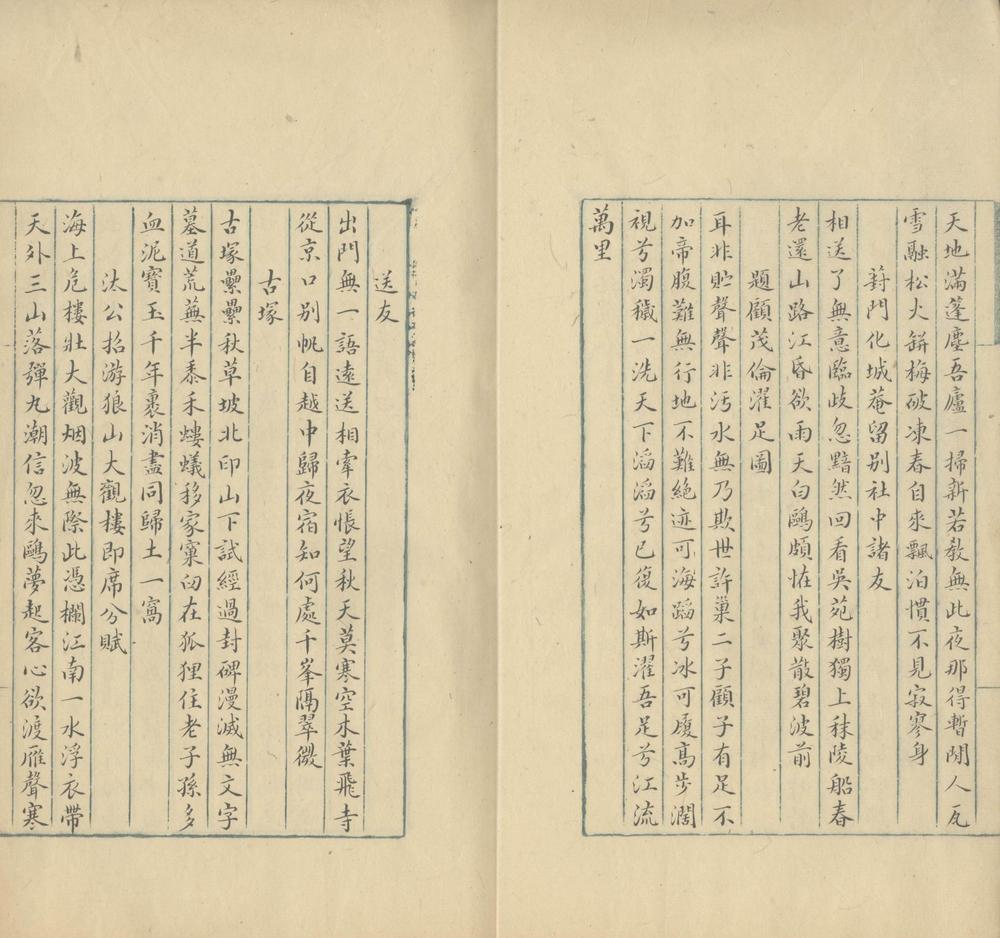 天地滿蓬塵吾廬一掃新若教無此夜那得暫閒人瓦
雪融松火缾梅破凍春自來飄泊慣不見寂寥身
葑門化城菴留别社中諸友
相送了無意臨歧忽黯然回看吳苑樹獨上秣陵船春
老還山路江昏欲雨天白鷗頗恠我聚散碧波前
題顧茂倫濯足圖
耳非貯聲聲非污水無乃欺世許巢二子顧子有足不
加帝腹難無行地不難絶迹可海蹈兮冰可履高步濶
視兮濁穢一洗天下滔滔兮已復如斯濯吾足兮江流
萬里
送友
出門無一語遠送相牽衣悵望秋天莫寒空木葉飛寺
從京口别帆自越中歸夜宿知何處千峯隔翠微
古塚
古塚纍纍秋草坡北印山下試經過封碑漫滅無文字
墓道荒蕪半黍禾螻蟻移家窠臼在狐狸住老子孫多
血泥寶玉千年裹消盡同歸土一窩
汰公招游狼山大觀樓即席分賦
海上危樓壯大觀烟波無際此憑欄江南一水浮衣帶
天外三山落彈丸潮信忽來鷗夢起客心欲渡雁聲寒